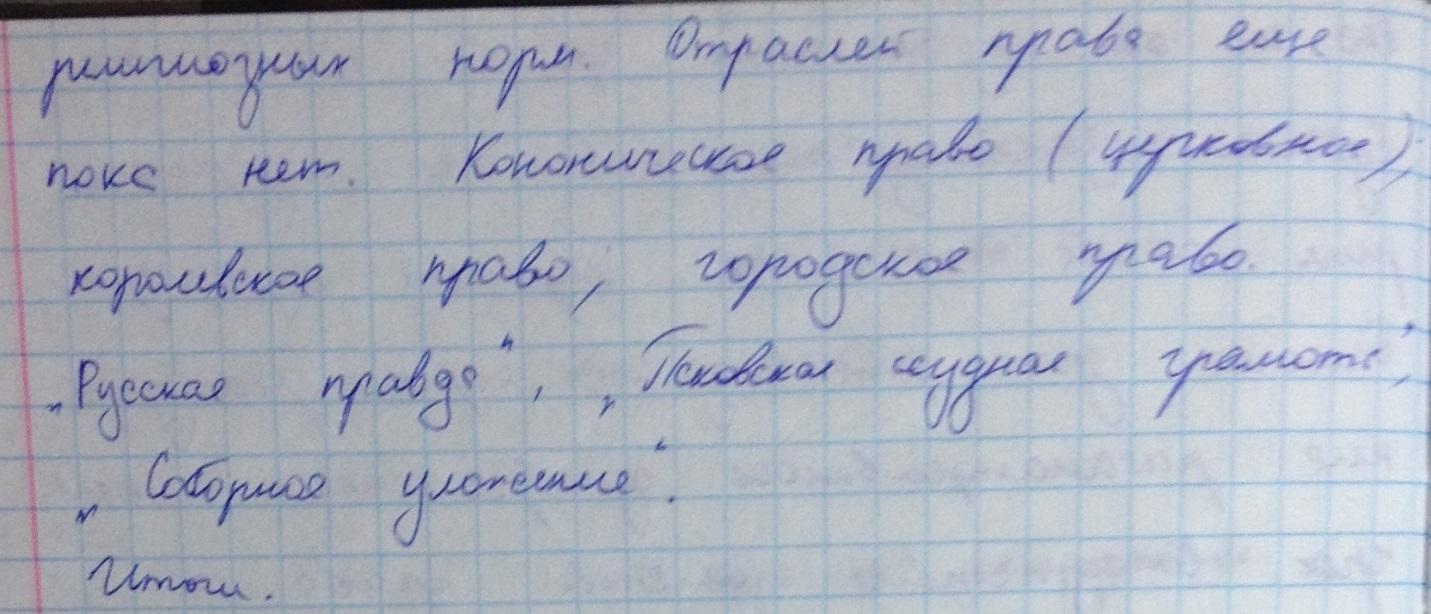 религиозных норм. Отраслей права еще
пока нет. Каноническое право (церковное),
королевское право, городское право.
„Русская правда“, „Псковская судная грамота“,
„Соборное уложение“.
Итоги.